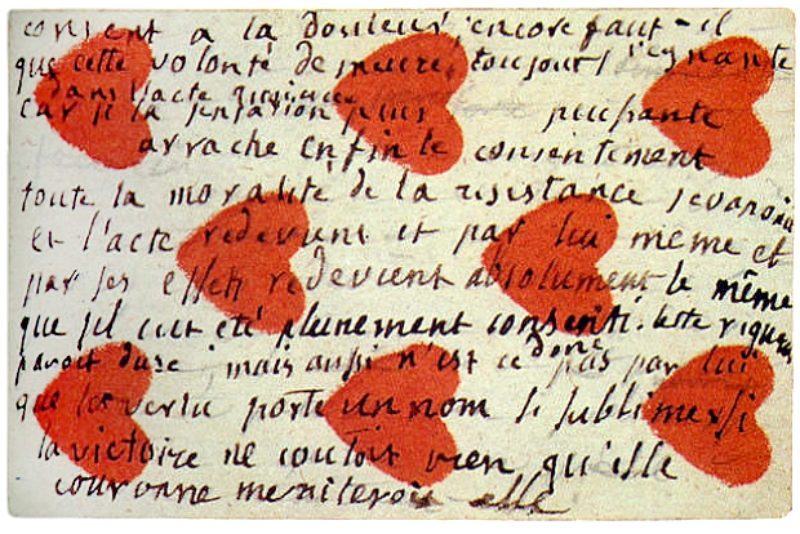 consent a la douleur, encore faut-il
que cette volonté de meure toujours regnante
dans l'acte
car si la tentation plus puissante
arrache enfin le consentement
toute la moralité de la resistance s'evanoui
et l'acte redevient et par lui meme et
par ses effets redevient absolument le même
que s'il eut été pleinement consenti. Cette rigueur
paroit dure, mais aussi n'est ce donc pas par lui
que la vertu porte un nom si sublime si
la victoire ne coutoit rien qu'elle
couronne meriteroit elle